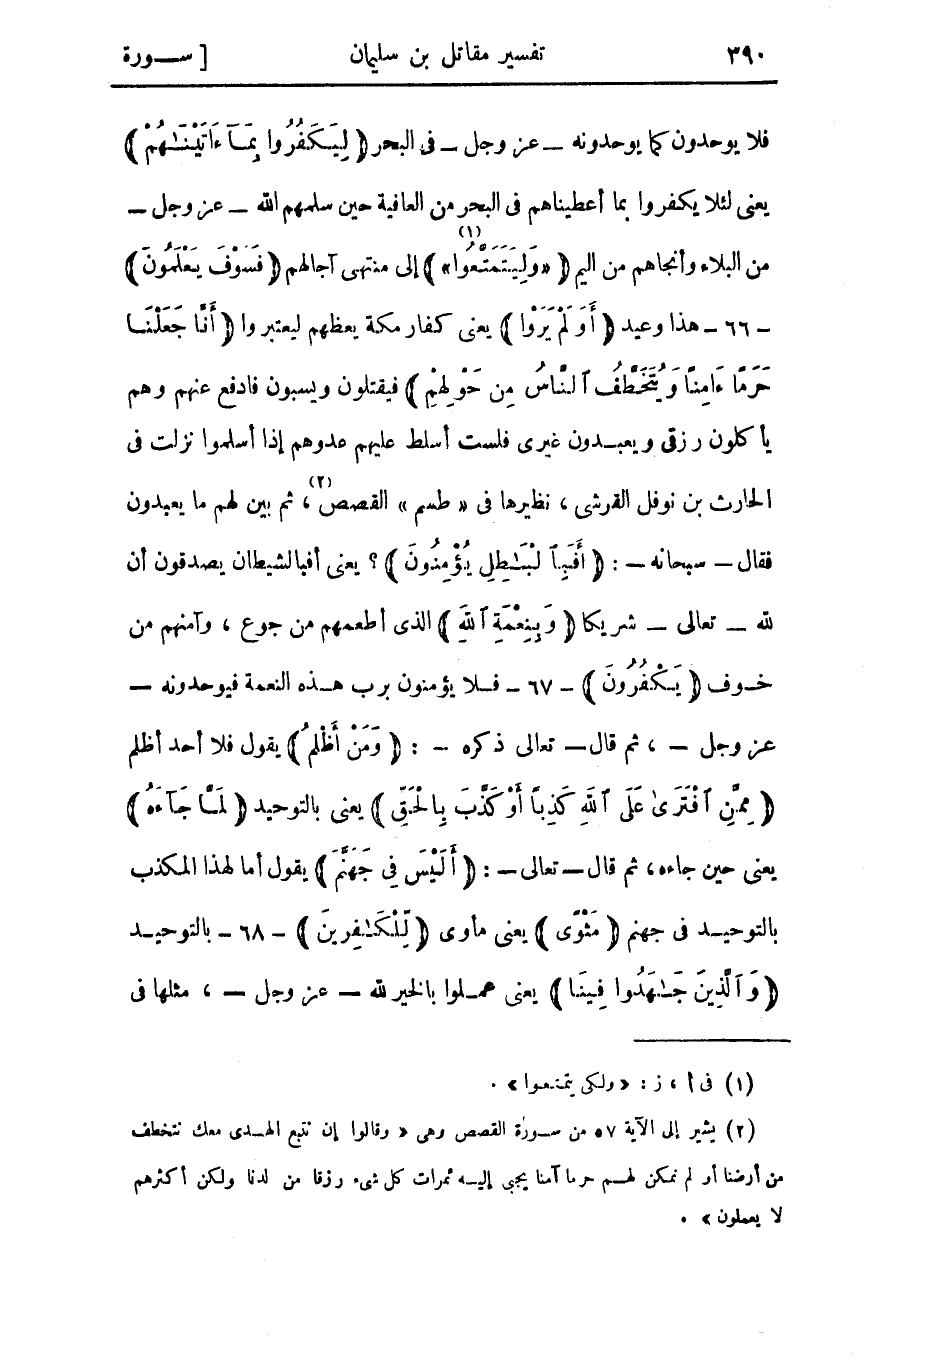 ٣٩٠ تفسير مقاتل بن سليمان [ ســورة
فلا يوحدون كما يوحدونه ــ عز وجل ــ فى البحر ﴿ لِيَكْفُرُوا بِمَآ ءَاتَيْنَـٰهُمْ ﴾
يعنى لئلا يكفروا بما أعطيناهم فى البحر من العافية حين سلمهم الله ــ عز وجل ــ
من البلاء وأنجاهم من اليم ﴿ «وَلِيَتَمَتَّعُوا» ﴾ (١) إلى منتهى آجالهم ﴿ فَسَوْفَ يَعْلَمُونَ ﴾
ــ ٦٦ ــ هذا وعيد ﴿ أَوَلَمْ يَرَوْا ﴾ يعنى كفار مكة يعظهم ليعتبروا ﴿ أَنَّا جَعَلْنَـا
حَرَمًا ءَامِنًا وَيُتَخَطَّفُ ٱلنَّاسُ مِن حَوْلِهِمْ ﴾ فيقتلون ويسبون فادفع عنهم وهم
يأكلون رزقى ويعبـدون غيرى فلست أسلط عليهم عدوهم إذا أسلموا نزلت فى
الحارث بن نوفل القرشى ، نظيرها فى « طسم » القصص (٢) ، ثم بين لهم ما يعبدون
فقال ــ سبحانه ــ : ﴿ أَفَبِٱلْبَـٰطِلِ يُؤْمِنُونَ ﴾ ؟ يعنى أفبالشيطان يصدقون أن
لله ــ تعالى ــ شريكا ﴿ وَبِنِعْمَةِ ٱللَّهِ ﴾ الذى أطعمهم من جوع ، وآمنهم من
خـوف ﴿ يَكْفُرُونَ ﴾ ــ ٦٧ ــ فـلا يؤمنون برب هـذه النعمة فيوحدونه ــ
عز وجل ــ ، ثم قال ــ تعالى ذكره ــ : ﴿ وَمَنْ أَظْلَمُ ﴾ يقول فلا أحد أظلم
﴿ مِمَّنِ ٱفْتَرَىٰ عَلَى ٱللَّهِ كَذِبًا أَوْ كَذَّبَ بِالْحَقِّ ﴾ يعنى بالتوحيد ﴿ لَمَّا جَآءَهُ ﴾
يعنى حين جاءه ، ثم قال ــ تعالى ــ : ﴿ أَلَيْسَ فِى جَهَنَّمَ ﴾ يقول أما لهذا المكذب
بالتوحيـد فى جهنم ﴿ مَثْوًى ﴾ يعنى مأوى ﴿ لِّلْكَـٰفِرِينَ ﴾ ــ ٦٨ ــ بالتوحيـد
﴿ وَٱلَّذِينَ جَـٰهَدُوا فِينَا ﴾ يعنى عمـلوا بالخير لله ــ عز وجل ــ ، مثلها فى
(١) فى أ ، ز : « ولكى يتمتعوا » .
(٢) يشير إلى الآية ٥٧ من سـورة القصص وهى « وقالوا إن نتبع الهـدى معك نتخطف
من أرضنا أو لم نمكن لهـم حرما آمنا يجبى إليـه ثمرات كل شىء رزقا من لدنا ولكن أكثرهم
لا يعملون » .